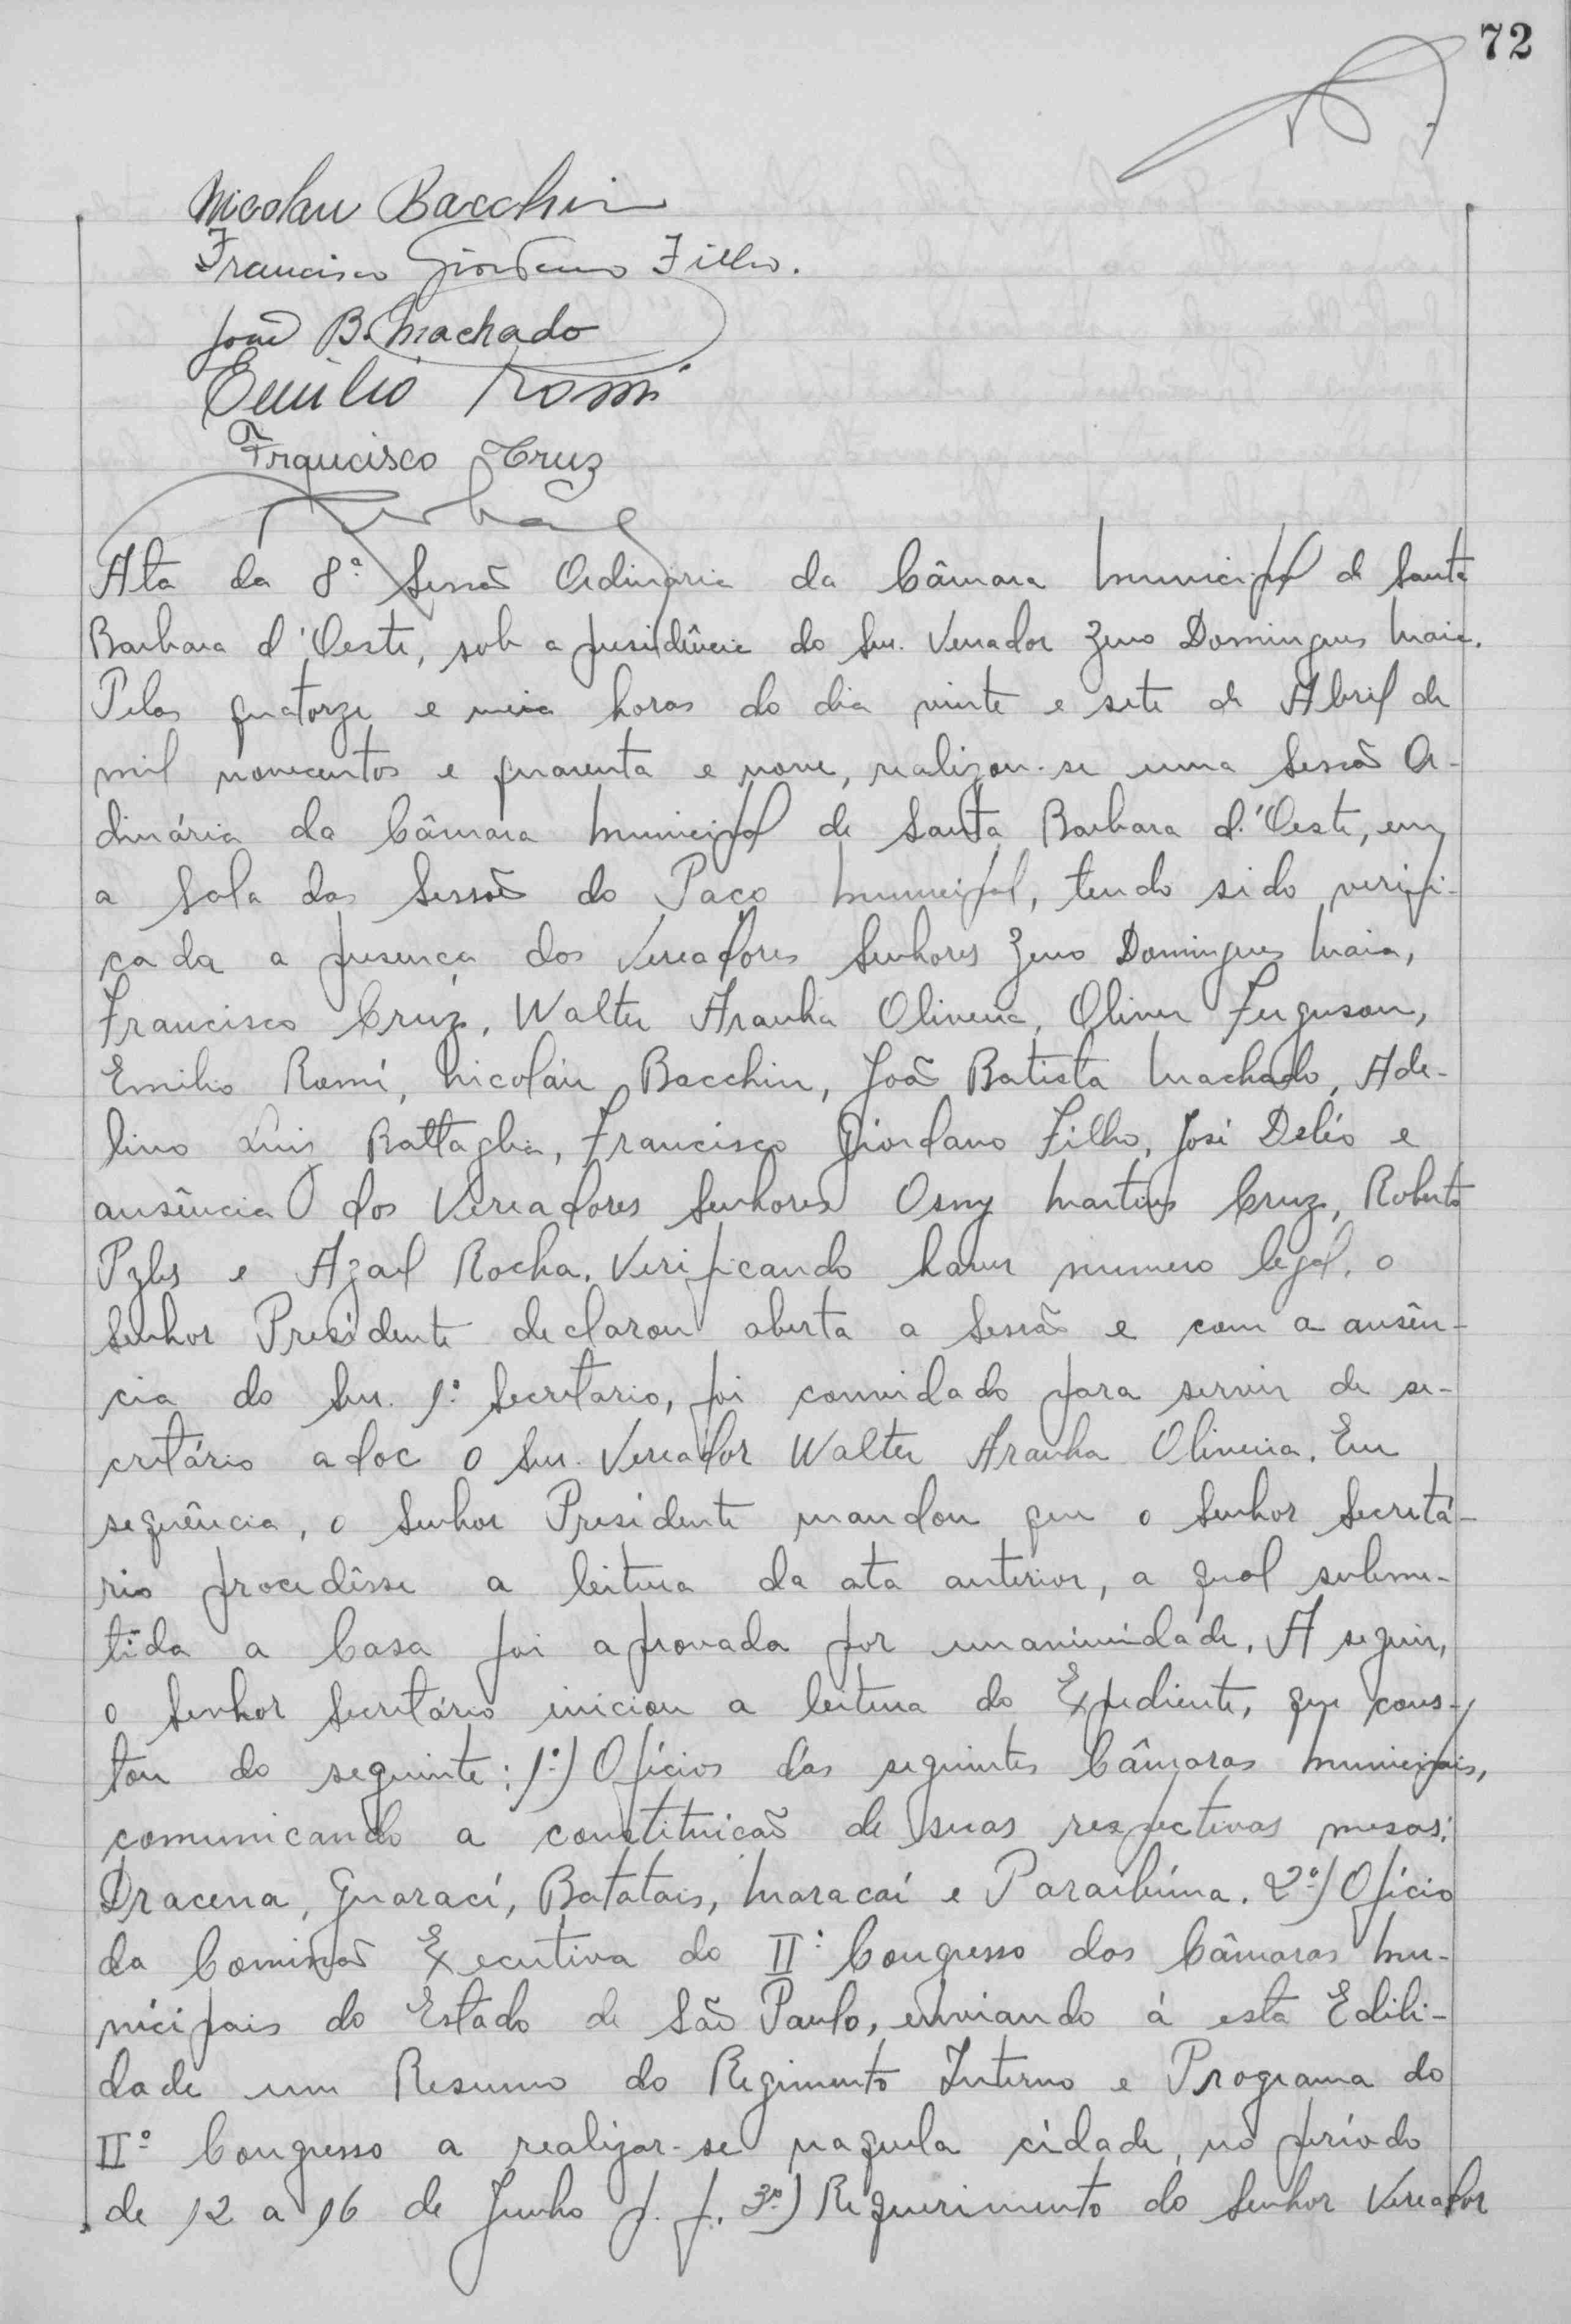 72
Nicolau Bacchin
Francisco Giordano Filho.
João B. Machado
Emilio Romi
Francisco Cruz
Ata da 8ª Sessão Ordinária da Câmara Municipal de Santa
Barbara d'Oeste, sob a presidência do Snr. Vereador Zeno Domingues Maia.
Pelas quatorze e meia horas do dia vinte e sete de Abril de
mil novecentos e quarenta e nove, realizou-se uma Sessão Or-
dinária da Câmara Municipal de Santa Barbara d'Oeste, em
a Sala das Sessões do Paço Municipal, tendo sido verifi-
cada a presença dos Vereadores Senhores Zeno Domingues Maia,
Francisco Cruz, Walter Aranha Oliveira, Oliver Ferguson,
Emilio Romi, Nicoláu Bacchin, João Batista Machado, Ade-
lino Luis Battaglia, Francisco Giordano Filho, José Deléo e
ausência dos Vereadores Senhores Osny Martins Cruz, Roberto
Pyles e Azael Rocha. Verificando haver numero legal, o
Senhor Presidente declarou aberta a Sessão e com a ausên-
cia do Snr. 1º Secretario, foi convidado para servir de se-
cretário adoc o Snr. Vereador Walter Aranha Oliveira. Em
sequência, o Senhor Presidente mandou que o Senhor Secretá-
rio procedêsse a leitura da ata anterior, a qual subme-
tida a Casa foi aprovada por unanimidade. A seguir,
o Senhor Secretário iniciou a leitura do Expediente, que cons-
tou do seguinte: 1º) Ofícios das seguintes Câmaras Municipais,
comunicando a constituicão de suas respectivas mesas:
Dracena, Guaraci, Batatais, Maracaí e Paraibúna. 2º) Ofício
da Comissão Executiva do IIº Congresso das Câmaras Mu-
nicipais do Estado de São Paulo, enviando á esta Edili-
dade um Resumo do Regimento Interno e Programa do
IIº Congresso a realizar-se naquela cidade, no período
de 12 a 16 de Junho p. f. 3º) Requerimento do Senhor Vereador